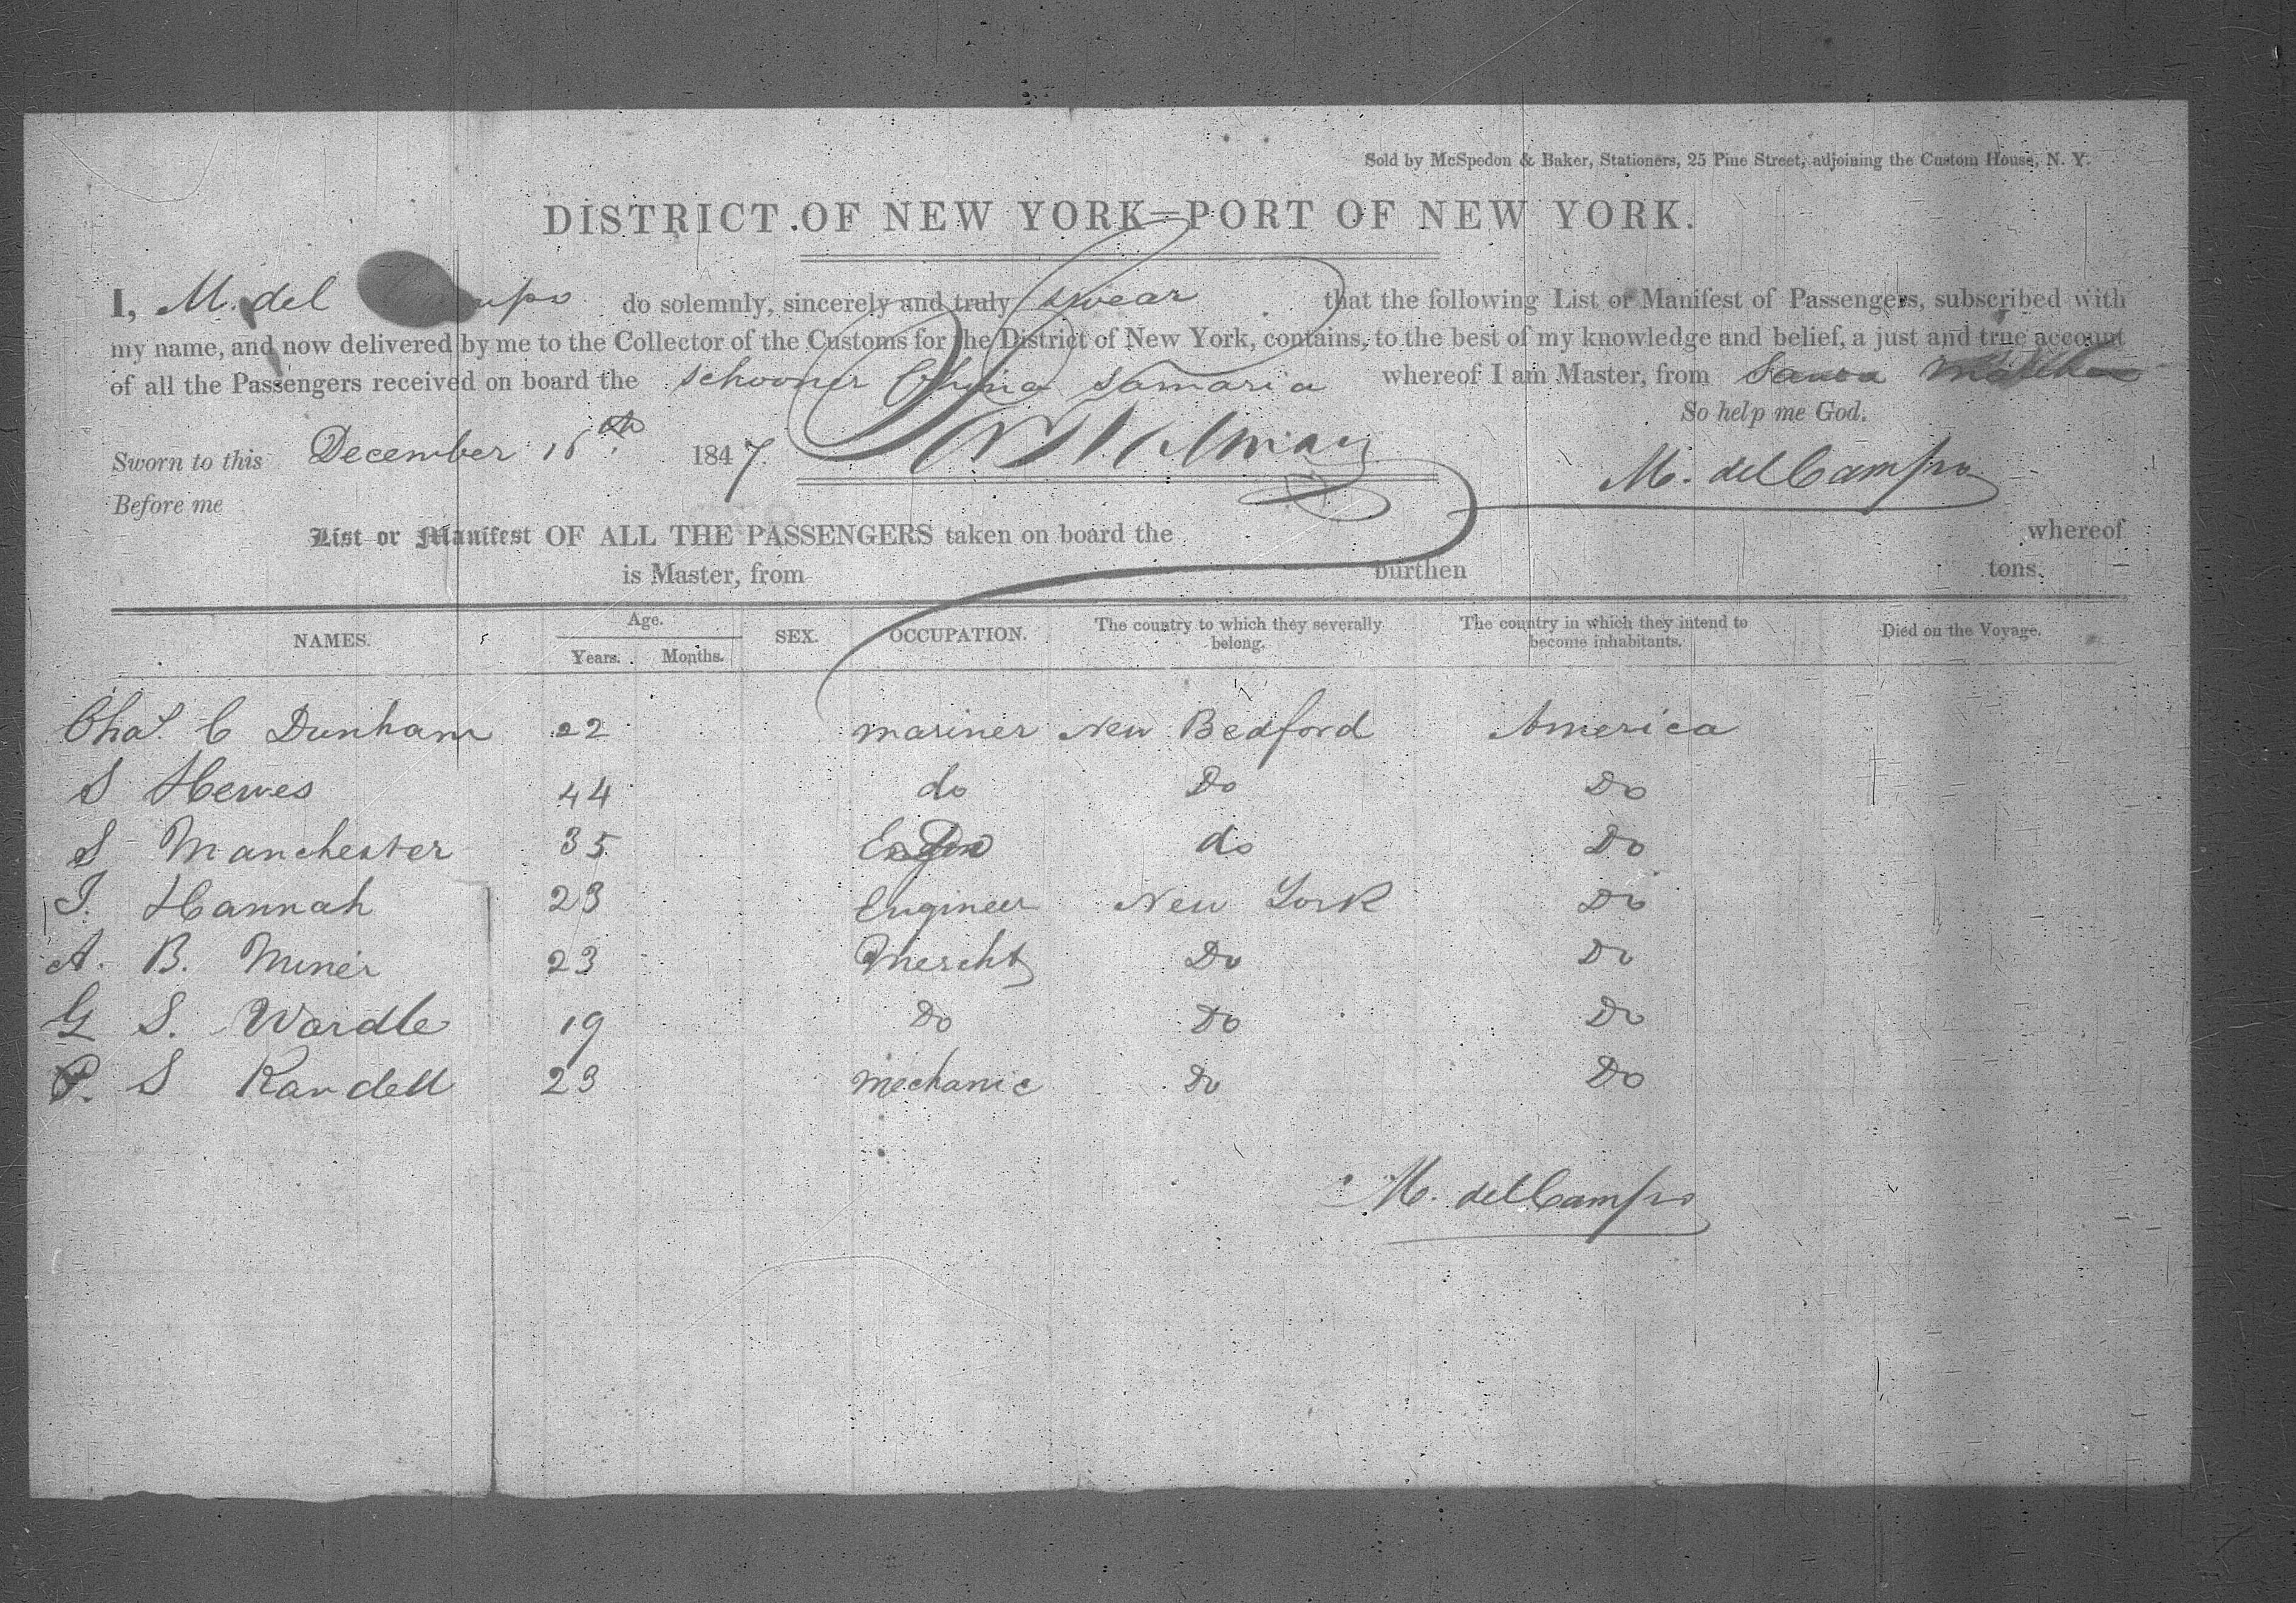 Sold by McSpedon & Baker, Stationers, 25 Pine Street, adjoining the Custom House, N. Y.
DISTRICT OF NEW YORK—PORT OF NEW YORK.
I, M. del do solemnly, sincerely and truly swear that the following List or Manifest of Passengers, subscribed with
my name, and now delivered by me to the Collector of the Customs for the District of New York, contains, to the best of my knowledge and belief, a just and true account
of all the Passengers received on board the schooner Samaria whereof I am Master, from
So help me God.
Sworn to this December 1847
M. del Campo
Before me
List or Manifest OF ALL THE PASSENGERS taken on board the whereof
is Master, from burthen tons.
NAMES. Age. Years. Months. SEX. OCCUPATION. The country to which they severally belong. The country in which they intend to become inhabitants. Died on the Voyage.
Chas. C Dunham 22 mariner New Bedford America
S Hewes 44 do Do Do
S Manchester 35 do Do
Hannah 23 Engineer New York Do
A. B. Miner 23 Mercht Do Do
G S. Wardle 19 Do Do Do
P. S Randell 23 mechanic Do Do
M. del Campo